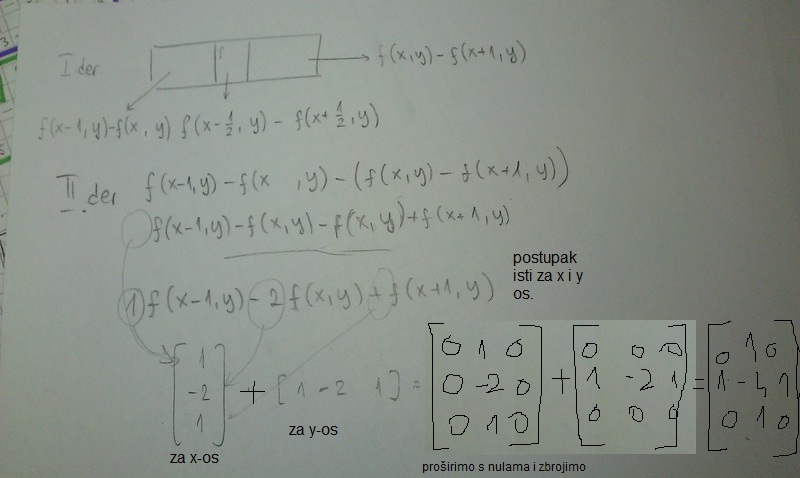 I der
f(x,y) - f(x+1, y)
f(x-1, y)-f(x, y) f(x-1/2, y) - f(x+1/2, y)
II der f(x-1,y) - f(x ,y) - (f(x,y) - f(x+1,y))
f(x-1,y) - f(x,y) - f(x,y) + f(x+1,y)
1 f(x-1,y) - 2 f(x,y) + f(x+1,y)
postupak
isti za x i y
os.
[1
-2
1] + [1 -2 1] = [0 1 0
0 -2 0
0 1 0] + [0 0 0
1 -2 1
0 0 0] = [0 1 0
1 -4 1
0 1 0]
za x-os
za y-os
proširimo s nulama i zbrojimo